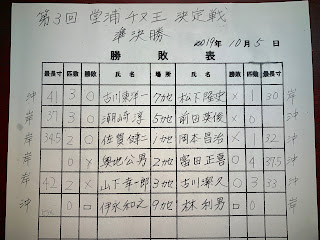 第3回 堂浦チヌ王決定戦
準決勝
2019年10月5日
勝敗表
最長寸 匹数 勝敗 氏名 場所 氏名 勝敗 匹数 最長寸
沖 41 3 ○ 古川東洋一 7か地 松下隆史 × 1 30 岸
岸 37 3 ○ 潮崎淳 5か地 前田英俊 × 0 沖
岸 34.5 2 ○ 佐賀健二 1か地 岡本昌治 × 1 32 沖
岸 0 × 奥地公男 2か地 富田正喜 ○ 4 39.5 沖
岸 42 2 × 山下幸一郎 3か地 古川潔久 ○ 3 33 沖
沖 0 □ 伊永和之 9か地 林利男 □ 0 岸